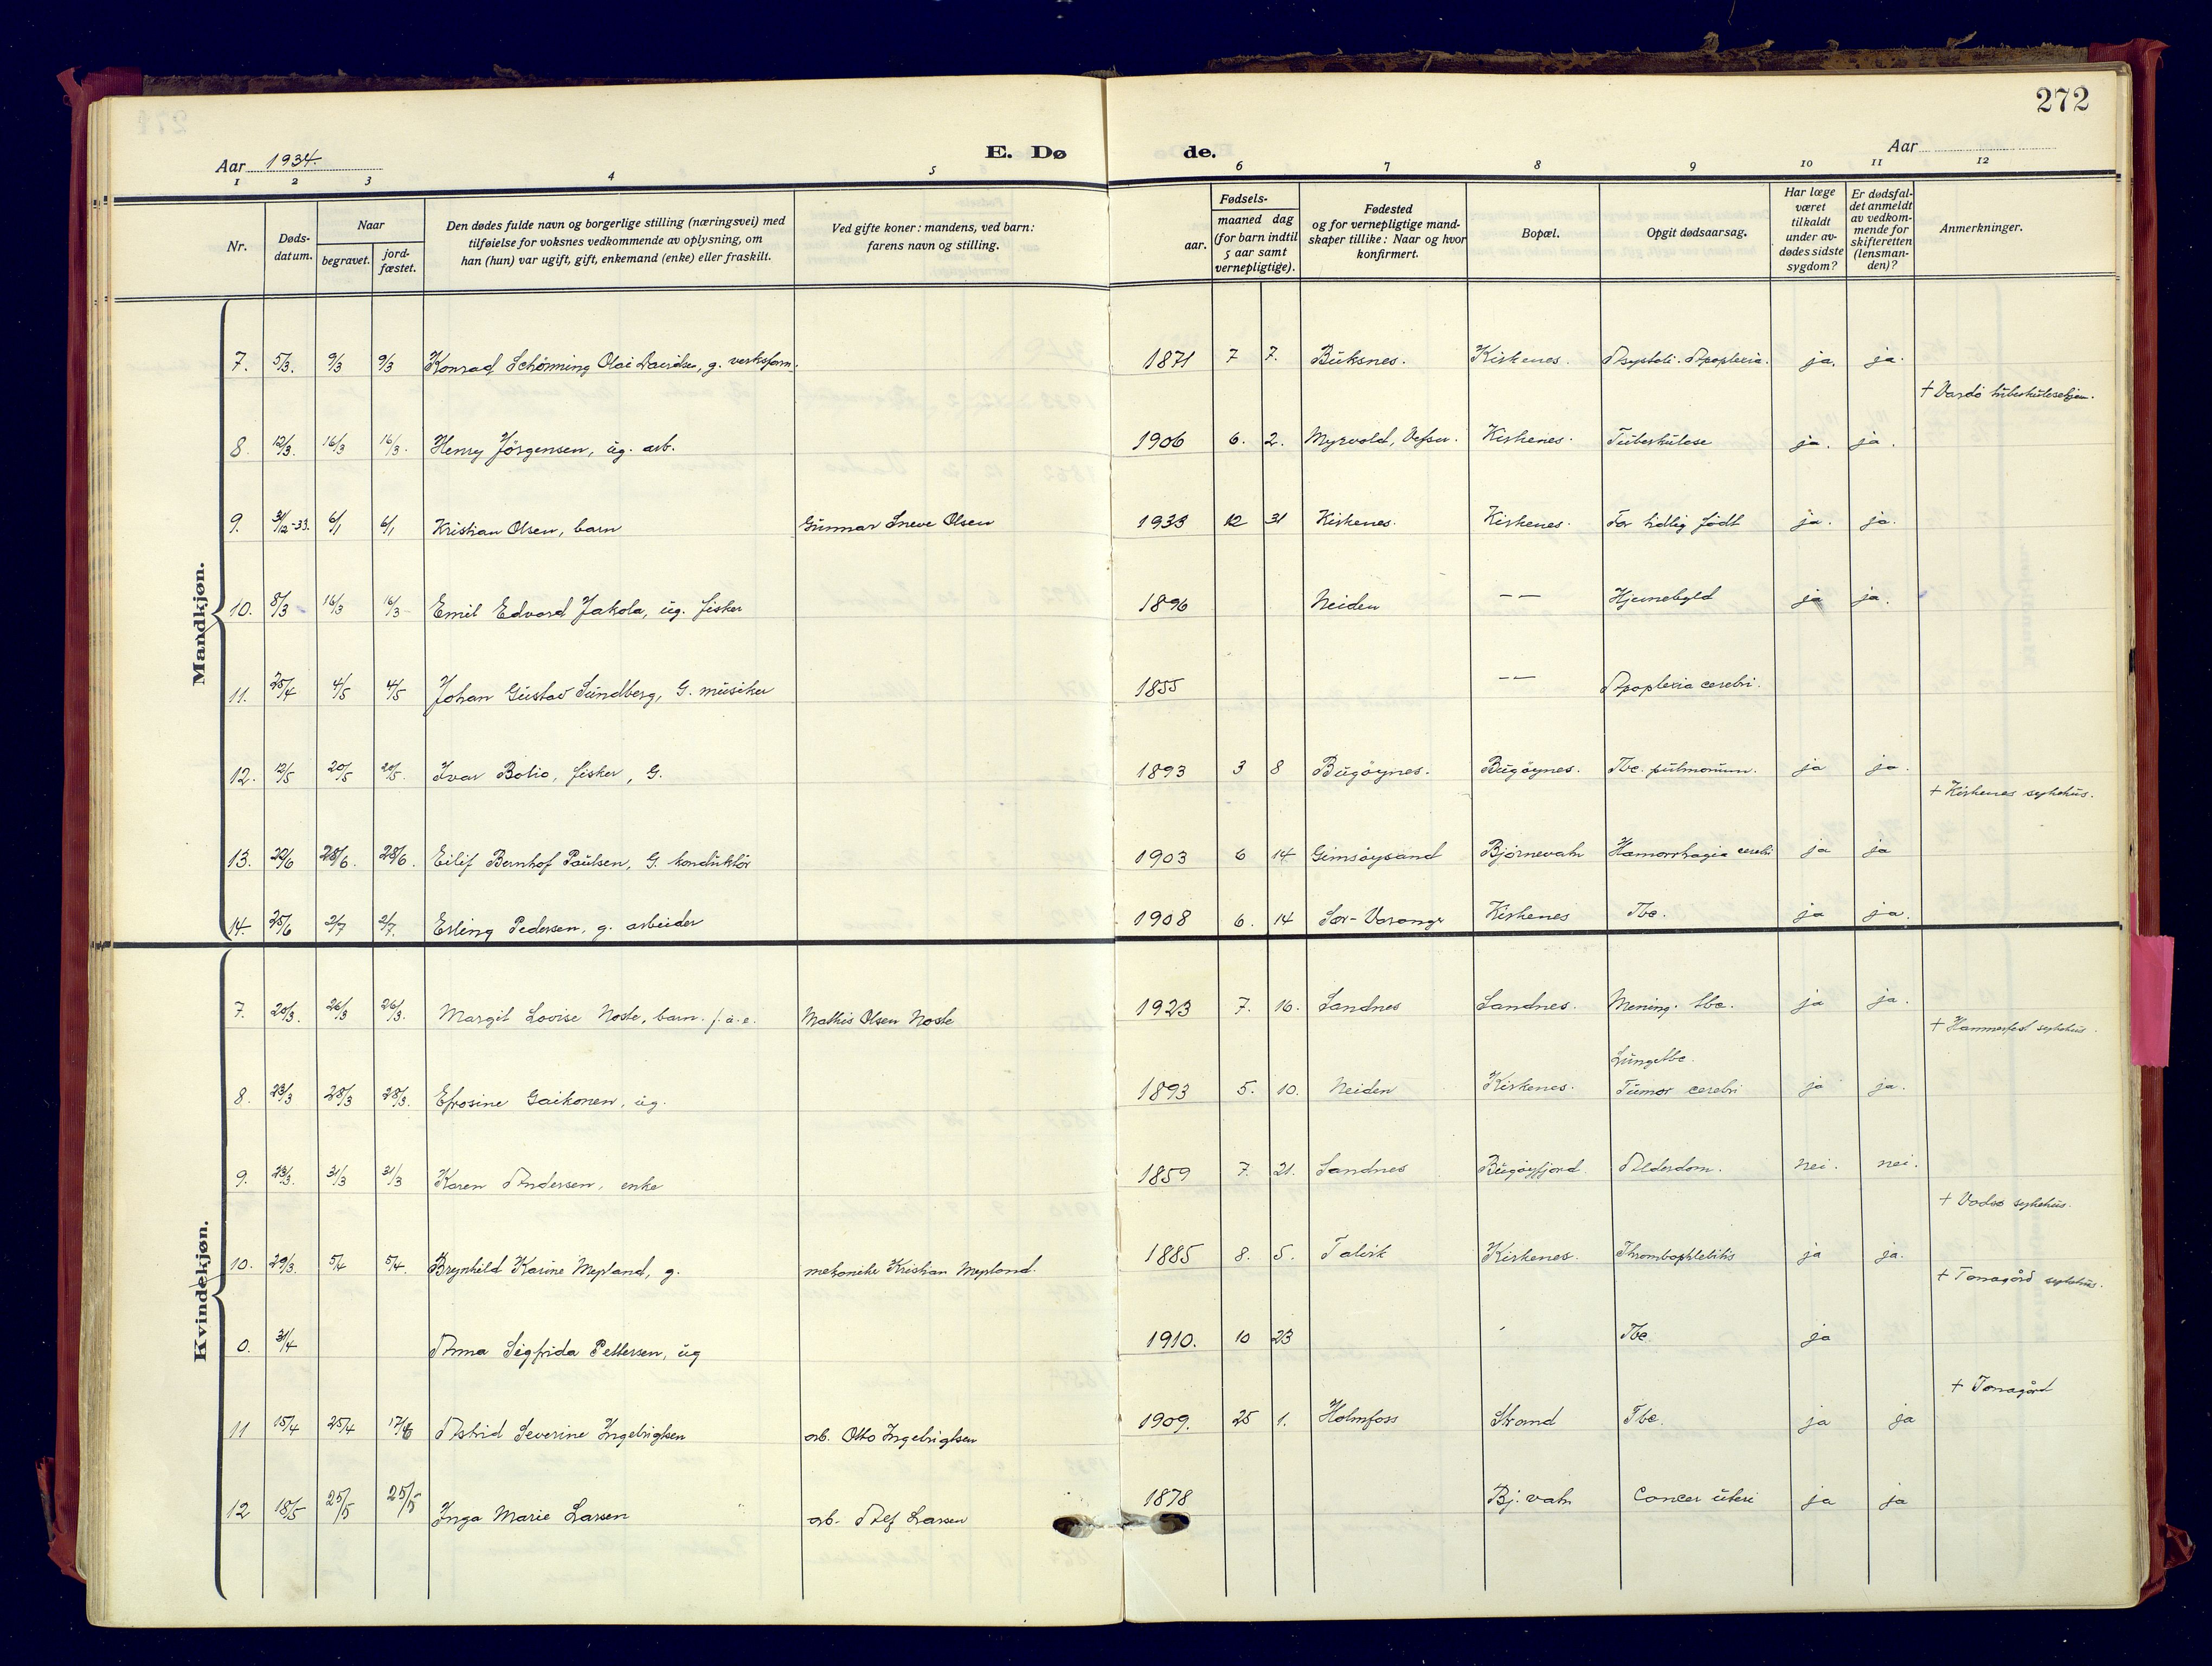 272
Aar 1934.
E. Dø
de.
Aar
1 2 3 4 5 6 7 8 9 10 11 12
Nr.
Døds-datum.
Naar
begravet.
jord-fæstet.
Den dødes fulde navn og borgerlige stilling (næringsvei) med
tilføielse for voksnes vedkommende av oplysning, om
han (hun) var ugift, gift, enkemand (enke) eller fraskilt.
Ved gifte koner: mandens, ved barn:
farens navn og stilling.
Fødsels-
aar.
maaned dag
(for barn indtil
5 aar samt
vernepligtige).
Fødested
og for vernepligtige mand-
skaper tillike: Naar og hvor
konfirmert.
Bopæl.
Opgit dødsaarsag.
Har læge
været
tilkaldt
under av-
dødes sidste
sygdom?
Er dødsfal-
det anmeldt
av vedkom-
mende for
skifteretten
(lensman-
den)?
Anmerkninger.
Mandkjøn.
7. 5/3. 9/3 9/3 Konrad Schönning Olai Davidsen, g. verksform. 1871 7 7. Buksnes. Kirkenes. Asystoli. Apoplexia. ja. ja.
+ Vardö tuberkulosehjem.
8. 12/3. 16/3 16/3. Henry Jörgensen, ug. arb. 1906 6. 2. Myrvold, Vefsn. Kirkenes. Tuberkulose ja. ja.
9. 31/12-33. 6/1 6/1 Kristian Olsen, barn Gunnar Sneve Olsen 1933 12 31 Kirkenes. Kirkenes. For tidlig födt ja. ja.
10. 8/3 16/3 16/3 Emil Edvard Jakola, ug. fisker 1896 Neiden — — Hjernebyld ja ja.
11. 25/4 4/5 4/5 Johan Gustav Sundberg, G. musiker 1855 — — Apoplexia cerebri.
12. 12/5 20/5 20/5. Ivar Botio, fisker, G. 1893 3 8 Bugöynes. Bugöynes. Tbc. pulmonum. ja ja.
+ Kirkenes sykehus.
13. 22/6 28/6. 28/6. Eilif Bernhof Paulsen, G. konduktör 1903 6 14 Gimsöysand Björnevatn Hæmorrhagia cerebri ja ja
14. 25/6 2/7 2/7. Erling Pedersen, g. arbeider 1908 6. 14 Sør-Varanger Kirkenes Tbc. ja ja.
Kvindekjøn.
7. 20/3. 26/3 26/3. Margit Lovise Noste, barn. f.a.e. Mathis Olsen Noste 1923 7. 16. Sandnes Sandnes. Mening. tbc. ja ja.
+ Hammerfest sykehus.
Lungetbc.
8. 23/3 28/3 28/3. Efrosine Gaikonen, ug. 1893 5. 10. Neiden Kirkenes. Tumor cerebri ja ja.
9. 23/3. 31/3 31/3 Karen Andersen, enke 1859 7. 21. Sandnes Bugöyfjord. Alderdom. nei. nei.
+ Vadsø sykehus.
10. 29/3. 5/4 5/4. Brynhild Karine Mepland, g. mekanike Kristian Mepland. 1885 8. 5. Talvik Kirkenes. Thrombophlebitis ja ja.
+ Tonsagård sykehus.
0. 31/4 Anna Sigfrida Pettersen, ug 1910. 10 23 Tbc. ja
+ Tonsagård
11 15/4 25/4 Astrid Severine Ingebrigtsen arb. Otto Ingebrigtsen 1909. 25 1. Holmfoss Strand Tbc. ja ja
12 18/5 25/5 25/5 Inga Marie Larsen arb. Alf Larsen 1878 Bj. vatn Cancer uteri ja ja